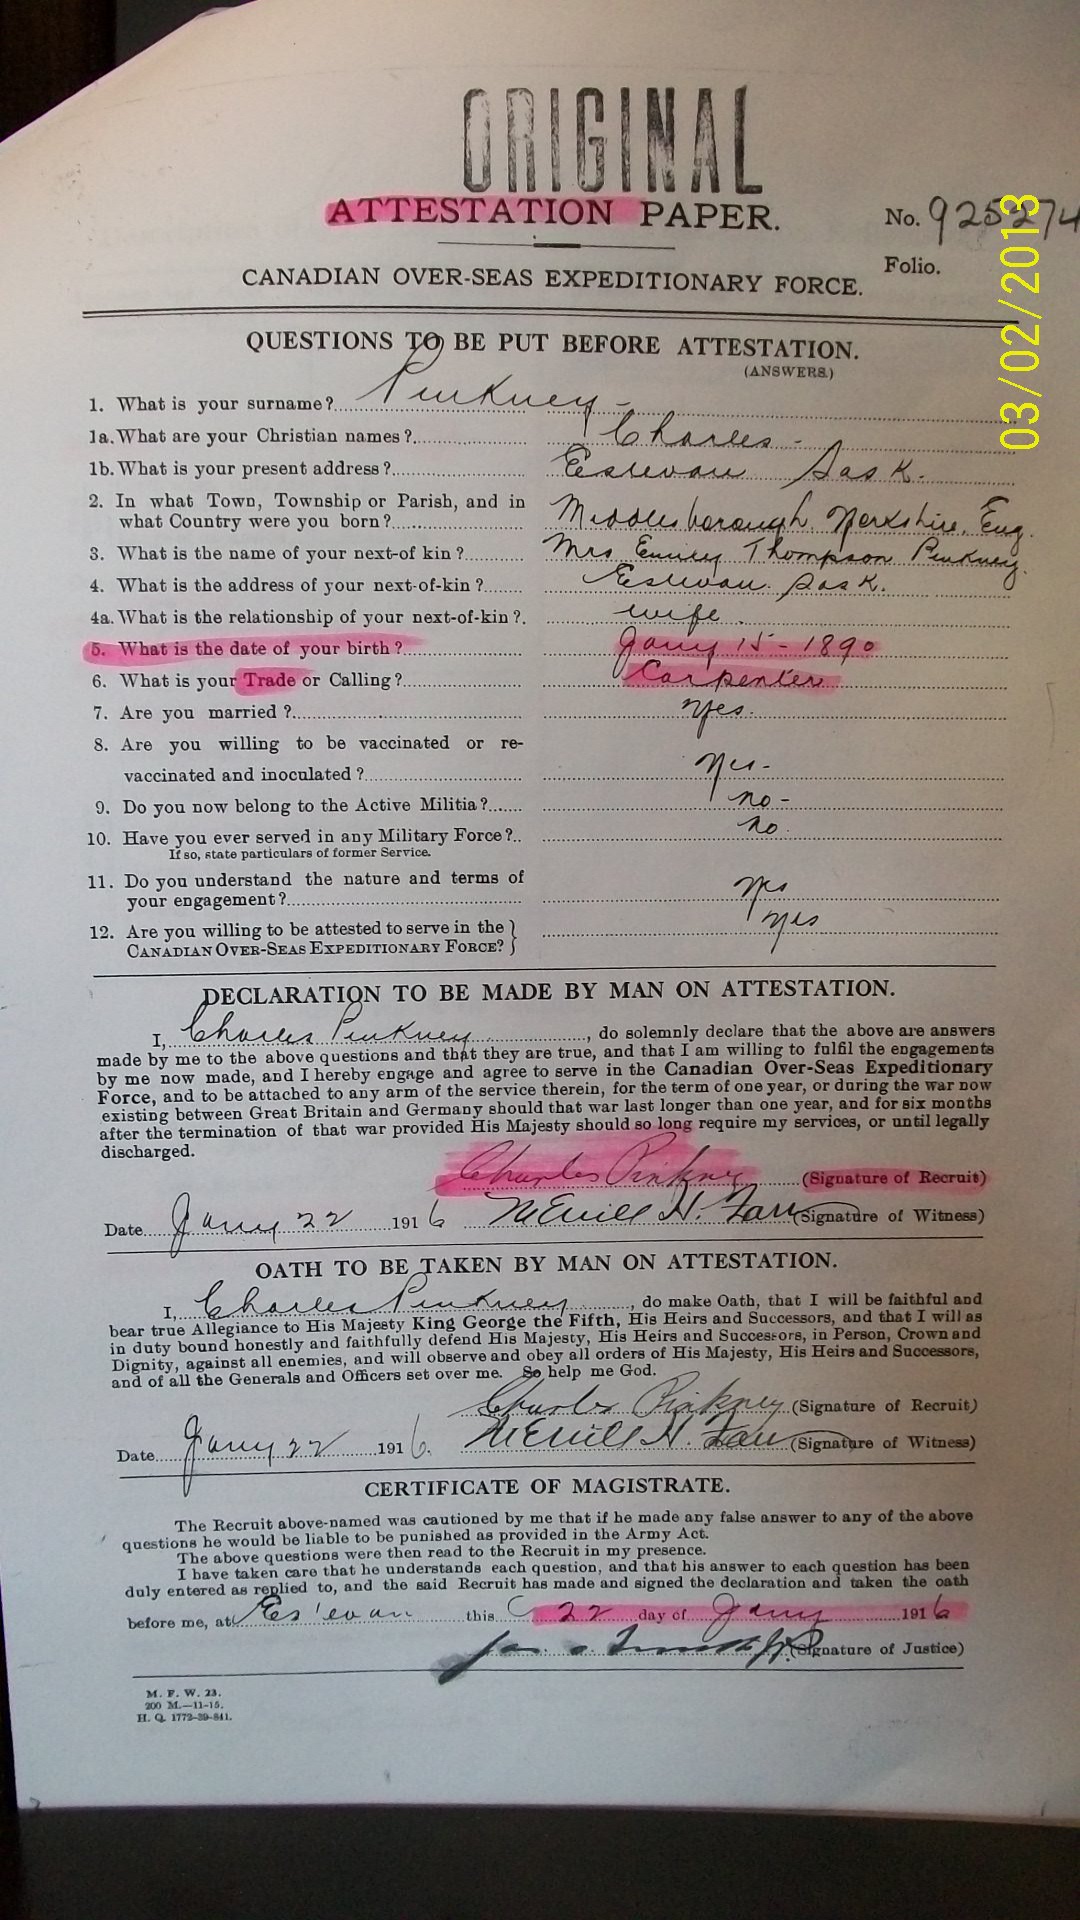 ORIGINAL
ATTESTATION PAPER.
No. 925274
Folio.
CANADIAN OVER-SEAS EXPEDITIONARY FORCE.
03/02/2013
QUESTIONS TO BE PUT BEFORE ATTESTATION.
(ANSWERS.)
1. What is your surname? Pinkney -
1a. What are your Christian names? Charles -
1b. What is your present address? Estevan Sask.
2. In what Town, Township or Parish, and in
what Country were you born? Middlesborough, Yorkshire, Eng.
3. What is the name of your next-of kin? Mrs Emily Thompson Pinkney.
4. What is the address of your next-of-kin? Estevan Sask.
4a. What is the relationship of your next-of-kin? wife.
5. What is the date of your birth? Jany 15 - 1890
6. What is your Trade or Calling? Carpenter
7. Are you married? yes.
8. Are you willing to be vaccinated or re-
vaccinated and inoculated? Yes -
9. Do you now belong to the Active Militia? no -
10. Have you ever served in any Military Force? no.
If so, state particulars of former Service.
11. Do you understand the nature and terms of
your engagement? yes
12. Are you willing to be attested to serve in the
CANADIAN OVER-SEAS EXPEDITIONARY FORCE? yes
DECLARATION TO BE MADE BY MAN ON ATTESTATION.
I, Charles Pinkney, do solemnly declare that the above are answers
made by me to the above questions and that they are true, and that I am willing to fulfil the engagements
by me now made, and I hereby engage and agree to serve in the Canadian Over-Seas Expeditionary
Force, and to be attached to any arm of the service therein, for the term of one year, or during the war now
existing between Great Britain and Germany should that war last longer than one year, and for six months
after the termination of that war provided His Majesty should so long require my services, or until legally
discharged.
Charles Pinkney (Signature of Recruit)
Date Jany 22 1916 Merrill H. (Signature of Witness)
OATH TO BE TAKEN BY MAN ON ATTESTATION.
I, Charles Pinkney, do make Oath, that I will be faithful and
bear true Allegiance to His Majesty King George the Fifth, His Heirs and Successors, and that I will as
in duty bound honestly and faithfully defend His Majesty, His Heirs and Successors, in Person, Crown and
Dignity, against all enemies, and will observe and obey all orders of His Majesty, His Heirs and Successors,
and of all the Generals and Officers set over me. So help me God.
Charles Pinkney (Signature of Recruit)
Date Jany 22 1916. Merrill H. (Signature of Witness)
CERTIFICATE OF MAGISTRATE.
The Recruit above-named was cautioned by me that if he made any false answer to any of the above
questions he would be liable to be punished as provided in the Army Act.
The above questions were then read to the Recruit in my presence.
I have taken care that he understands each question, and that his answer to each question has been
duly entered as replied to, and the said Recruit has made and signed the declaration and taken the oath
before me, at Estevan this 22 day of Jany 1916
(Signature of Justice)
M. F. W. 23.
200 M.—11-15.
H. Q. 1772-39-841.